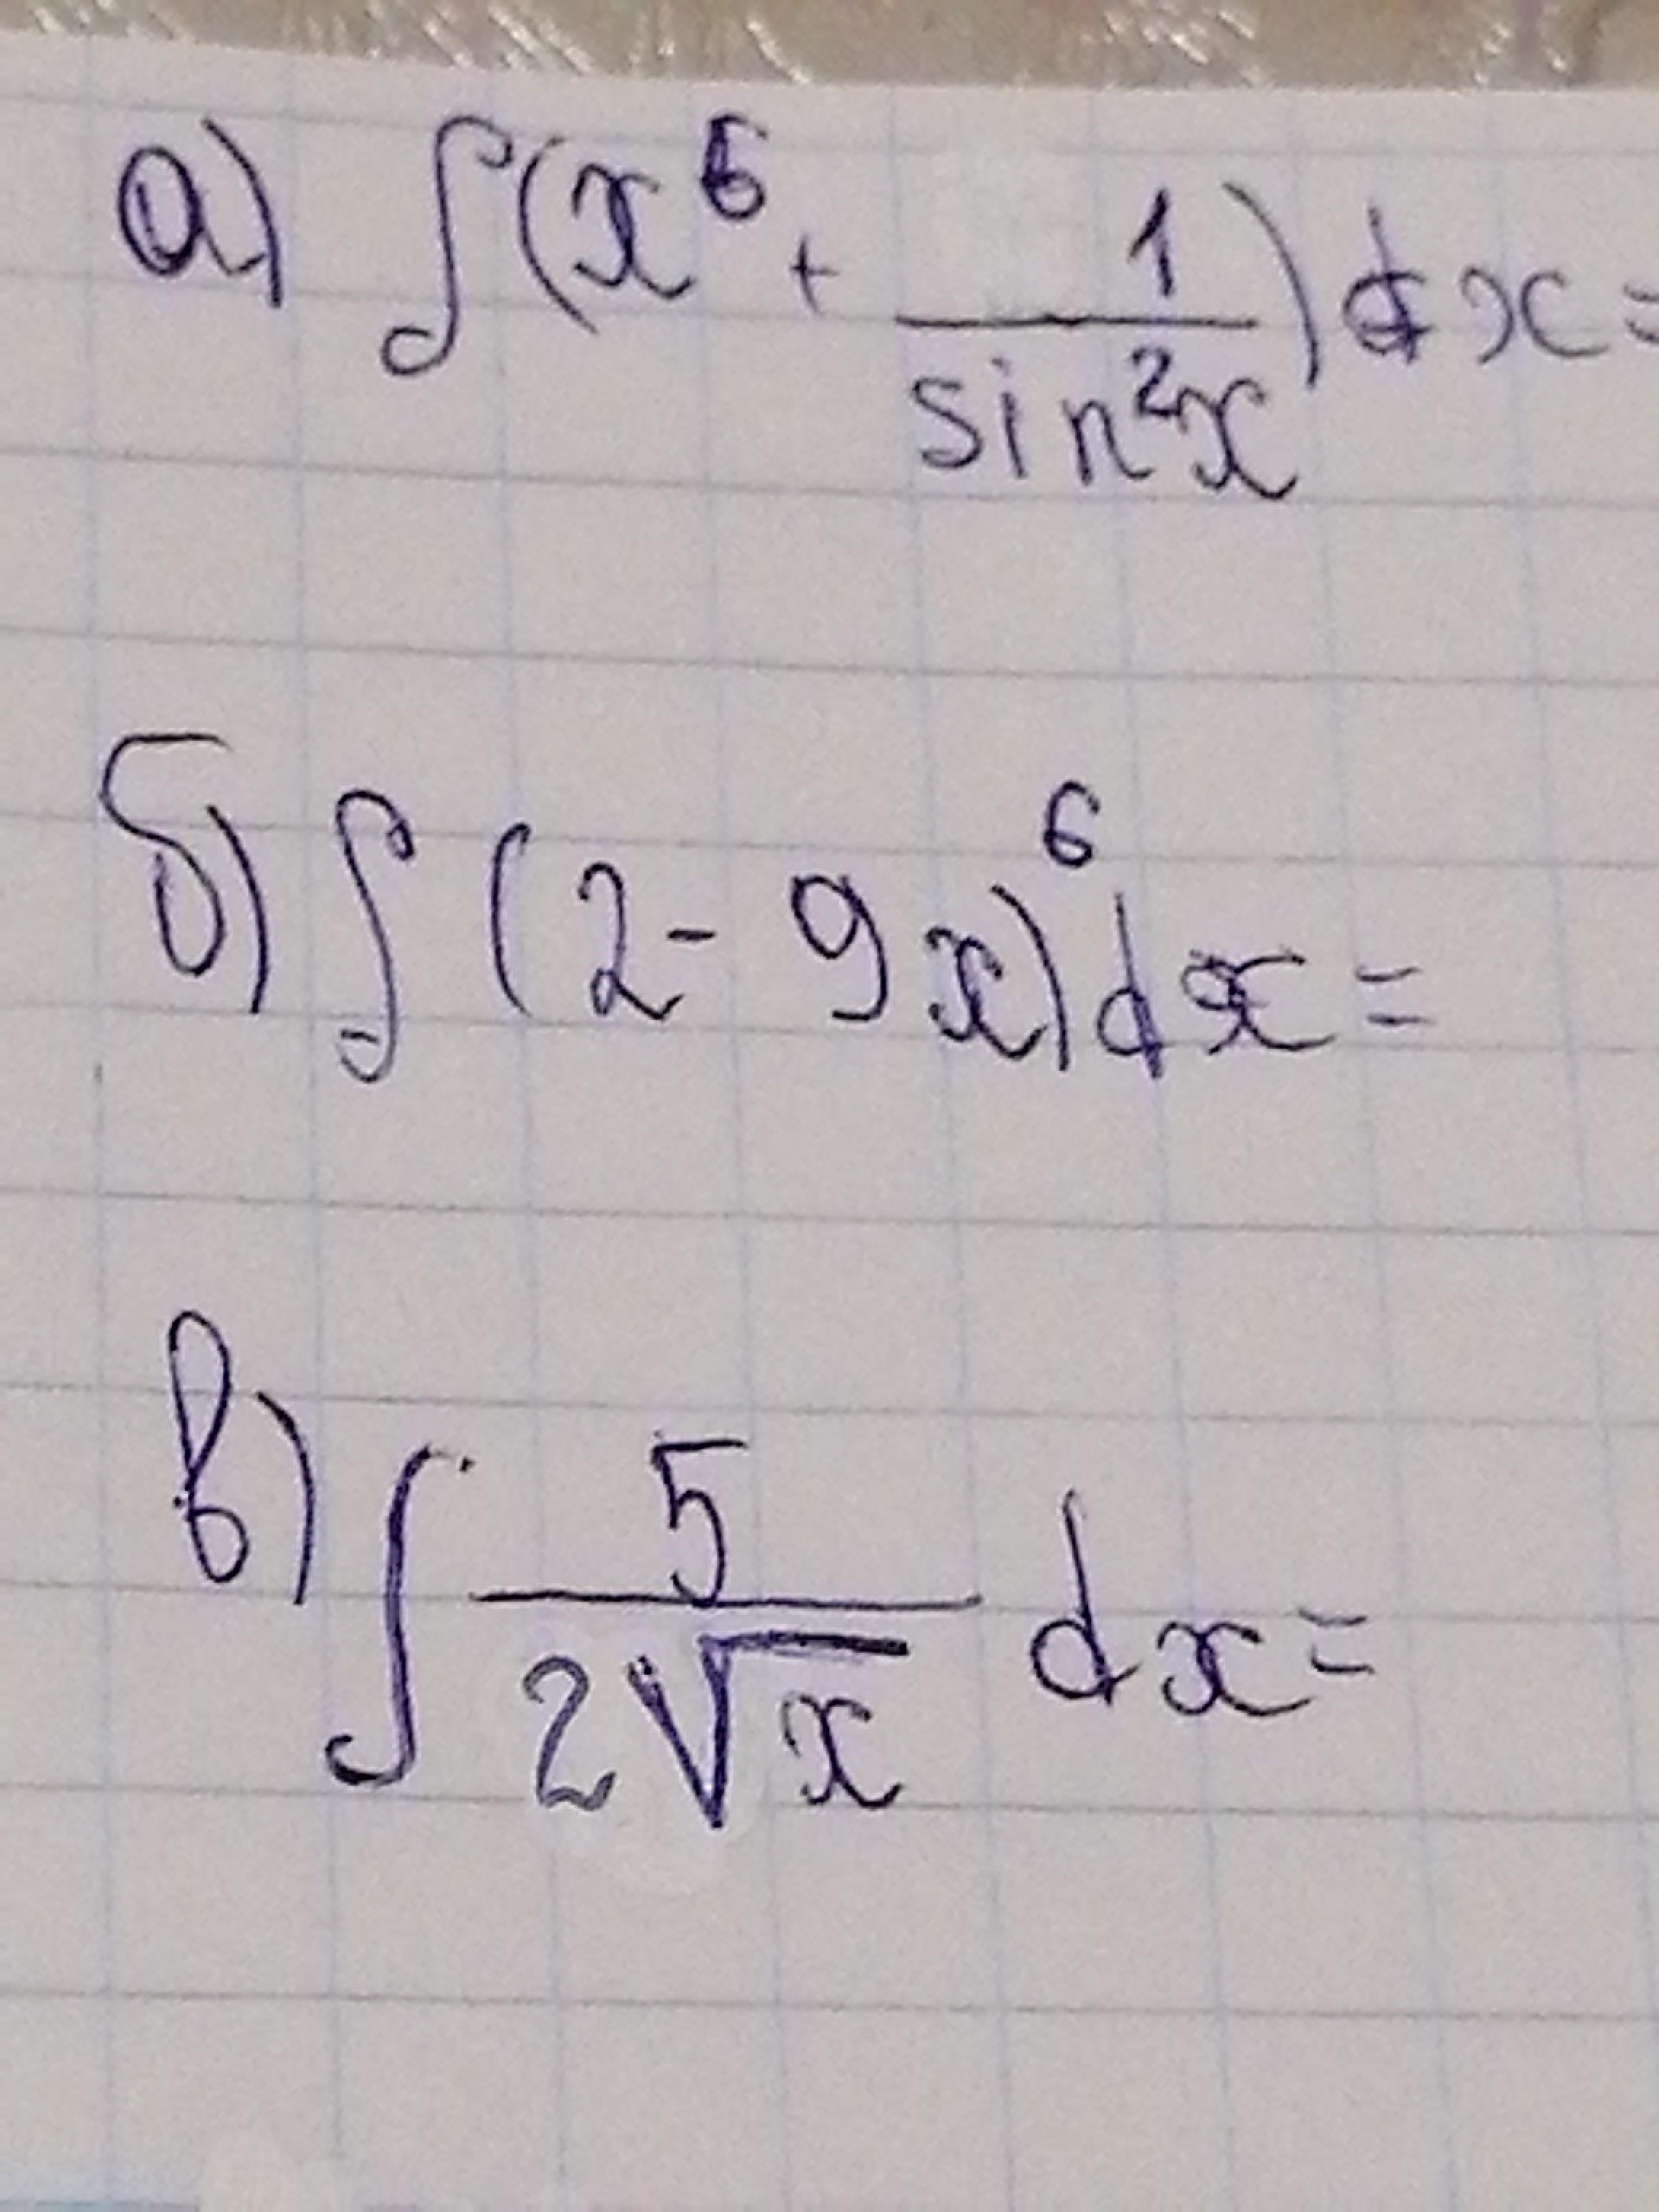 а) ∫(x⁶ + 1/sin²x)dx=
б) ∫(2-9x)⁶dx=
в) ∫ 5/(2√x) dx=